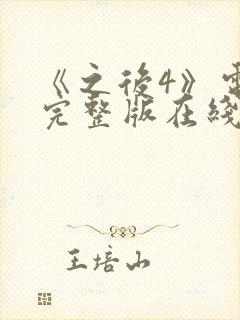 《之後4》
完整版在綫
王培山